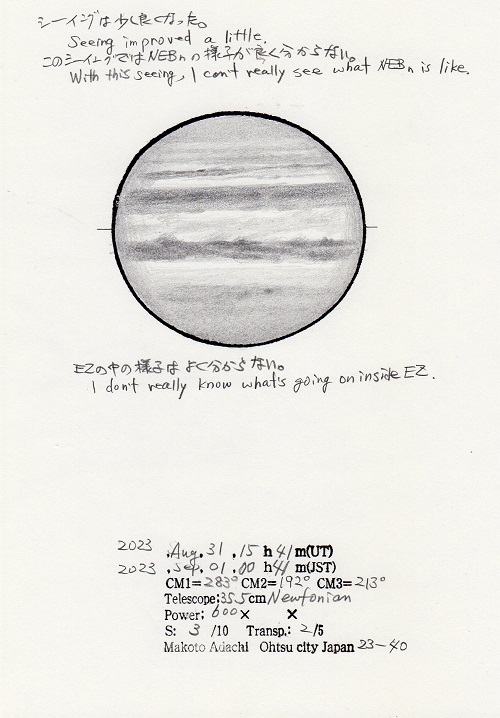 シーイングは少し良くなった。
Seeing improved a little.
このシーイングではNEBnの様子が良く分からない。
With this seeing, I can't really see what NEBn is like.
EZの中の様子はよく分からない。
I don't really know what's going on inside EZ.
2023 .Aug. 31 .15 h 41 m(UT)
2023 .Sep. 01 .00 h 41 m(JST)
CM1=283° CM2=192° CM3=213°
Telescope:35.5cm Newtonian
Power; 600× ×
S: 3 /10 Transp.: 2/5
Makoto Adachi Ohtsu city Japan 23-40